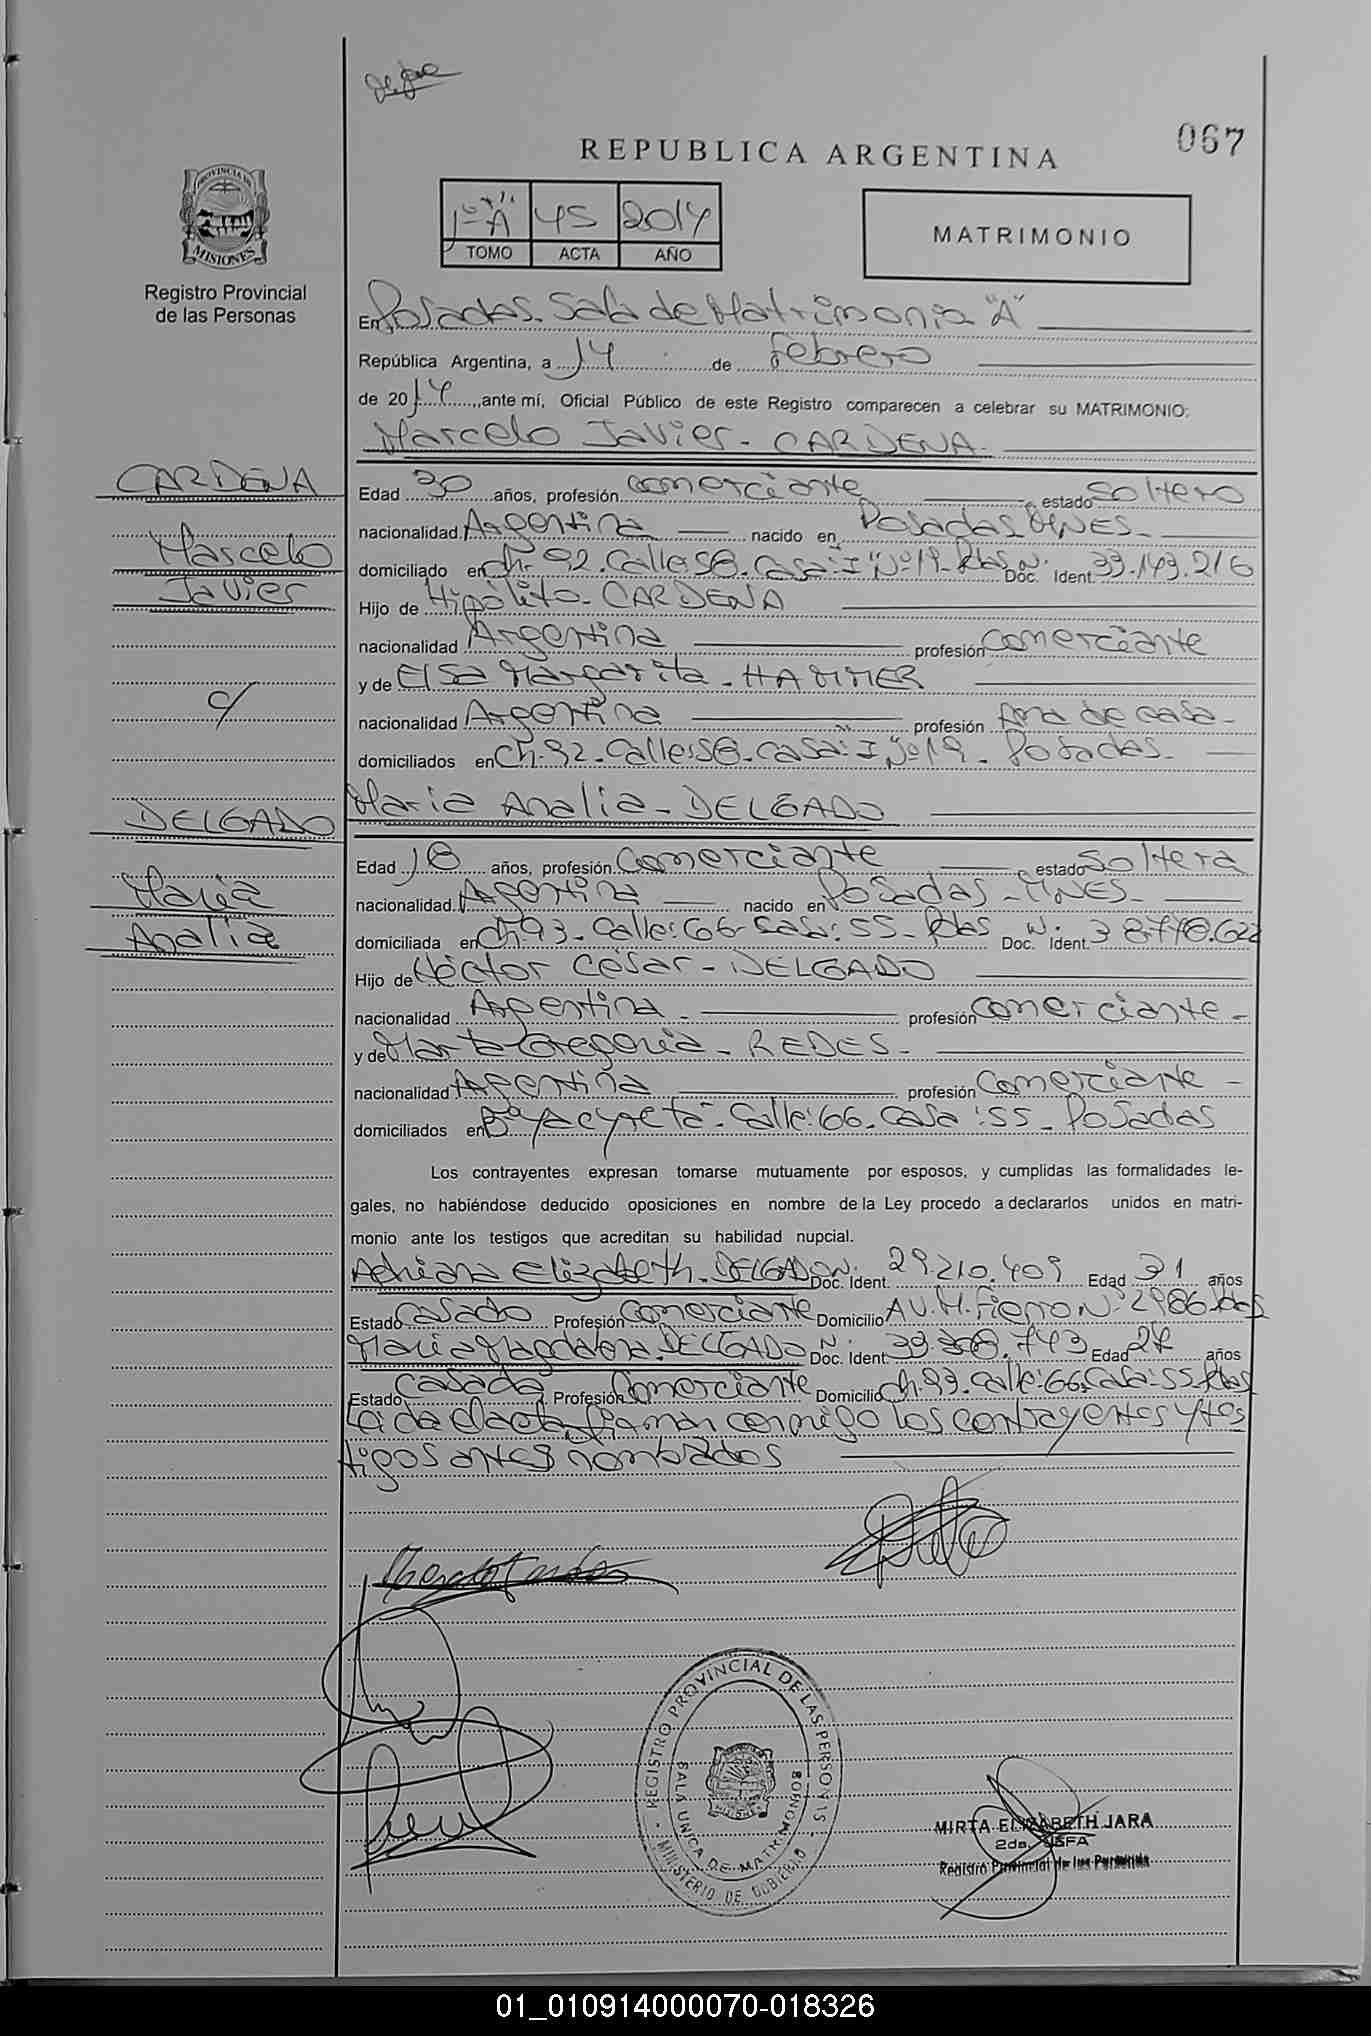 067
REPUBLICA ARGENTINA
PROVINCIA DE
MISIONES
1º "A" 45 2014
TOMO ACTA AÑO
MATRIMONIO
Registro Provincial
de las Personas
En Posadas. Sala de Matrimonio "A"
República Argentina, a 14 de febrero
de 2014, ante mí, Oficial Público de este Registro comparecen a celebrar su MATRIMONIO:
Marcelo Javier - CARDENA
CARDENA
Marcelo
Javier
c/
DELGADO
María
Analia
Edad 30 años, profesión comerciante estado soltero
nacionalidad Argentina nacido en Posadas MNES.
domiciliado en Ch. 92. Calle: 58. Casa: "I" Nº 19. Pdas Doc. N. Ident. 33.143.216
Hijo de Hipólito - CARDENA
nacionalidad Argentina profesión comerciante
y de Elsa Margarita - HAMMER
nacionalidad Argentina profesión Ama de casa -
domiciliados en Ch. 92. Calle: 58. Casa: "I" Nº 19 - Posadas -
María Analia - DELGADO
Edad 18 años, profesión comerciante estado soltera
nacionalidad Argentina nacido en Posadas - MNES -
domiciliada en Ch. 93. Calle: 66. Casa: 55. Pdas Doc. N. Ident. 38.778.622
Hijo de Héctor César - DELGADO
nacionalidad Argentina. profesión comerciante -
y de Marta Gregoria - REDES -
nacionalidad Argentina profesión Comerciante -
domiciliados en Bº Yacyreta - Calle: 66. Casa: 55 - Posadas
Los contrayentes expresan tomarse mutuamente por esposos, y cumplidas las formalidades le-
gales, no habiéndose deducido oposiciones en nombre de la Ley procedo a declararlos unidos en matri-
monio ante los testigos que acreditan su habilidad nupcial.
Adriana Elizabeth - DELGADO Doc. N. Ident. 29.210.409 Edad 31 años
Estado casado Profesión Comerciante Domicilio AV. M. Fierro Nº 2986 Pdas
María Magdalena. DELGADO Doc. N. Ident. 743 Edad 27 años
Estado casada Profesión Comerciante Domicilio Ch. 93. Calle: 66. Casa: 55. Pdas
Leída el acta, firman conmigo los contrayentes y tes
tigos antes nombrados
REGISTRO PROVINCIAL DE LAS PERSONAS
SALA UNICA DE MATRIMONIOS
- MINISTERIO DE GOBIERNO -
MIRTA ELIZABETH JARA
2da. JEFA
Registro Provincial de las Personas
01_010914000070-018326